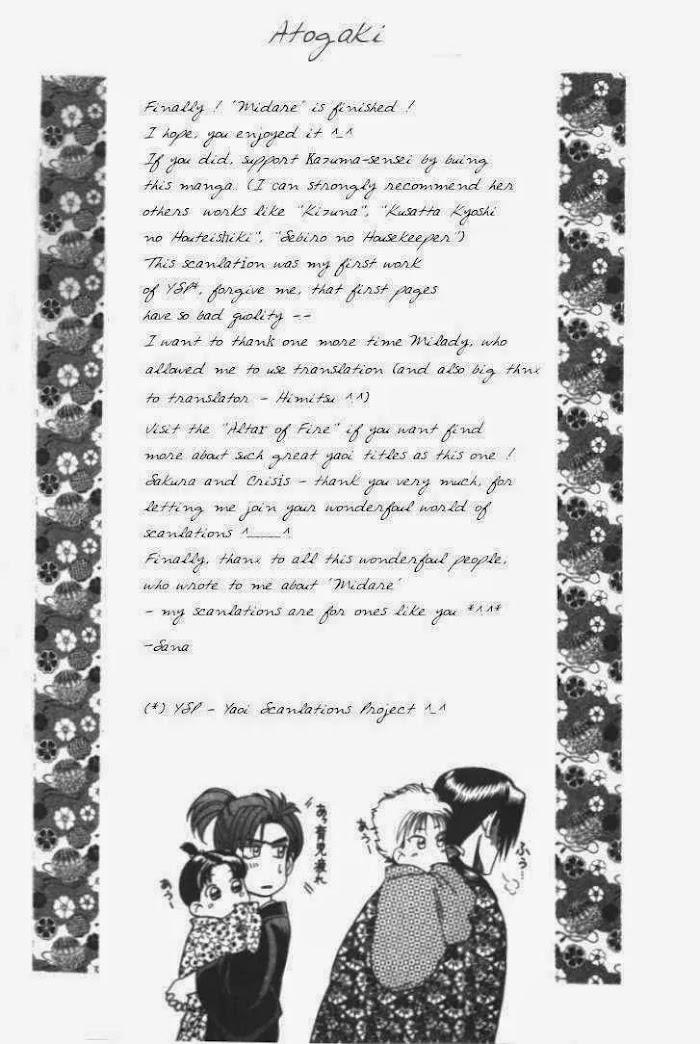 Atogaki
Finally ! 'Midare' is finished !
I hope, you enjoyed it ^_^
If you did, support Kazuma-sensei by buing
this manga. (I can strongly recommend her
others works like "Kizuna", "Kusatta Kyoshi
no Houteishiki", "Sebiro no Housekeeper")
This scanlation was my first work
of YSP*, forgive me, that first pages
have so bad quolity --
I want to thank one more time Milady, who
allowed me to use translation (and also big thnx
to translator - Himitsu ^^)
Visit the "Altar of Fire" if you want find
more about such great yaoi titles as this one !
Sakura and Crisis - thank you very much, for
letting me join your wonderfoul world of
scanlations ^_____^
Finally, thanx to all this wonderfoul people,
who wrote to me about 'Midare'
- my scanlations are for ones like you *^^*
-Sana
(*) YSP - Yaoi Scanlations Project ^_^
あっ育児疲れ
あぅ～
あぅー
ふぅ…